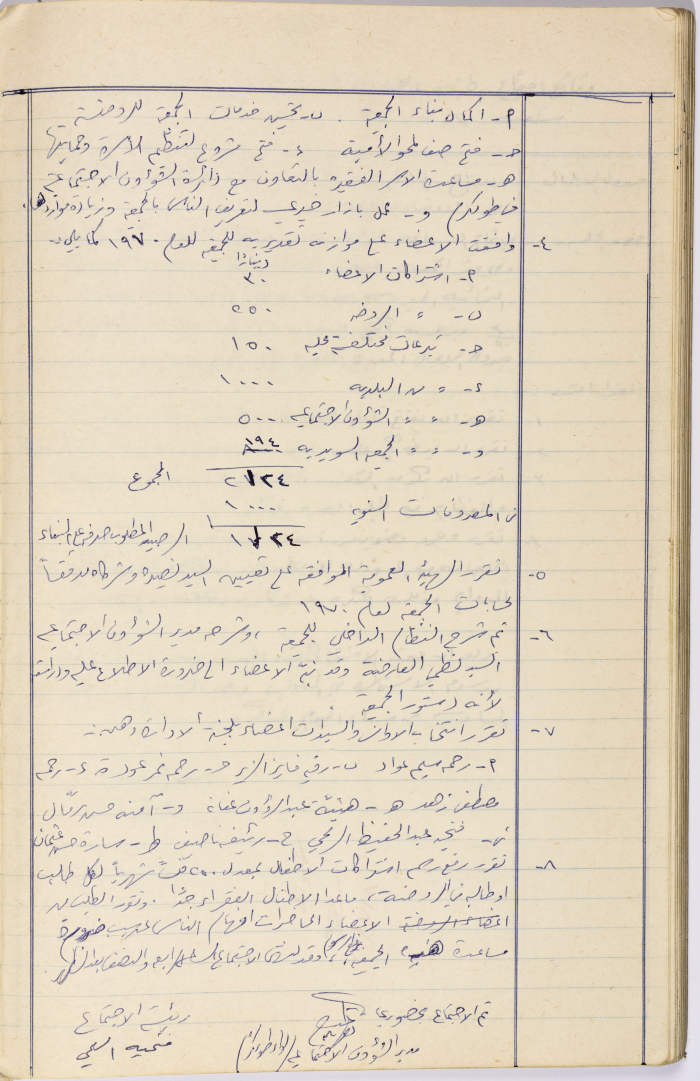 أ- اكمال بناء الجمعية . ب- تحسين خدمات الجمعية للروضة
حـ- فتح صف لمحو الأمية ء- فتح مشروع لتنظيم الأسرة وحمايتها
هـ- مساعدة الأسر الفقيرة بالتعاون مع دائرة الشؤون الاجتماعية
في طولكرم و- عمل بازار خيري لتعريف الناس بالجمعية وزيادة مواردها.
٤- وافقت الاعضاء على موازنة تقديرية للجمعية للعام ١٩٧٠ كما يلي:-
دينارًا
أ- اشتراكات الاعضاء ٣٠
ب- = الروضه ٢٥٠
حـ- تبرعات مختلفة محليه ١٥٠
ء- = من البلديه ١٠٠٠
هـ- = = الشؤون الاجتماعيه ٥٠٠
و- = = الجمعيه السويديه ١٩٤
المجموع ٢١٢٤
المصروفات السنويه ١٠٠٠
الرصيد المطلوب صرفه على البناء ١١٢٤
٥- تقرر الهيئة العمومية الموافقه على تعيين السيد وشركاه مدققاً
لحسابات الجمعية لعام ١٩٧٠
٦- تم شرح النظام الداخلي للجمعية، وشرحه مدير الشؤون الاجتماعيه
السيد نظمي وقد نبّه الاعضاء الى ضرورة الاطلاع عليه ودراسته
لأنه دستور الجمعية .
٧- تقرر انتخاب الاوانس والسيدات اعضاء للجنة الادارة وهن :-
أ- رحمه سليم عواد ب- رقيه فايز الزير حـ- رحمه نمر عودة ء- رحمه
مصطفى زهد هـ- هنيّة عبد الرؤوف عناية و- آمنه حسن رمّال
ز- فتحيه عبد الحفيظ السلمي ح- رئيفه ناصيف ط- سارة حسن عثمان
٨- تقرر رفع رسم اشتراكات الأطفال بمعدل ٢٥٠ فلساً شهرياً لكل طالب
او طالبه في الروضة، ماعدا الاطفال الفقراء جدًا . وتقرر الطلب من
الاعضاء الحاضرات افهام الناس ضرورة
مساعدة هذه الجمعية ، وقد انفض الاجتماع الساعة الرابعه والنصف بعد الظهر.
تم الاجتماع بحضوري
مدير الشؤون الاجتماعيه
رئيسة الاجتماع
فتحيه السلمي